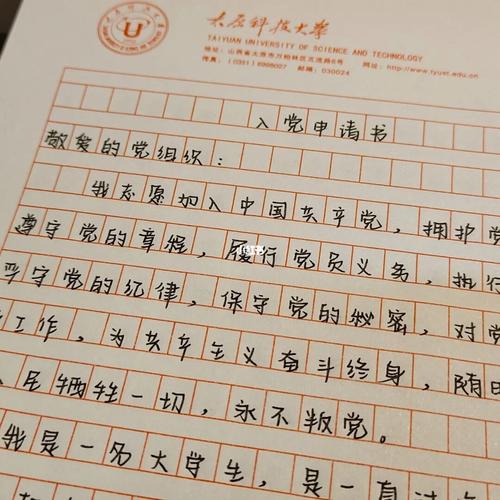 太原科技大学
TAIYUAN UNIVERSITY OF SCIENCE AND TECHNOLOGY
地址：山西省太原市万柏林区瓦流路66号
传真：（0351）6998027 邮编：030024 网址：http://www.tyust.edu.cn
入党申请书
敬爱的党组织：
我志愿加入中国共产党，拥护党
遵守党的章程，履行党员义务，执行
守党的纪律，保守党的秘密，对党
工作，为共产主义奋斗终身，随
民牺牲一切，永不叛党。
我是一名大学生，是一直